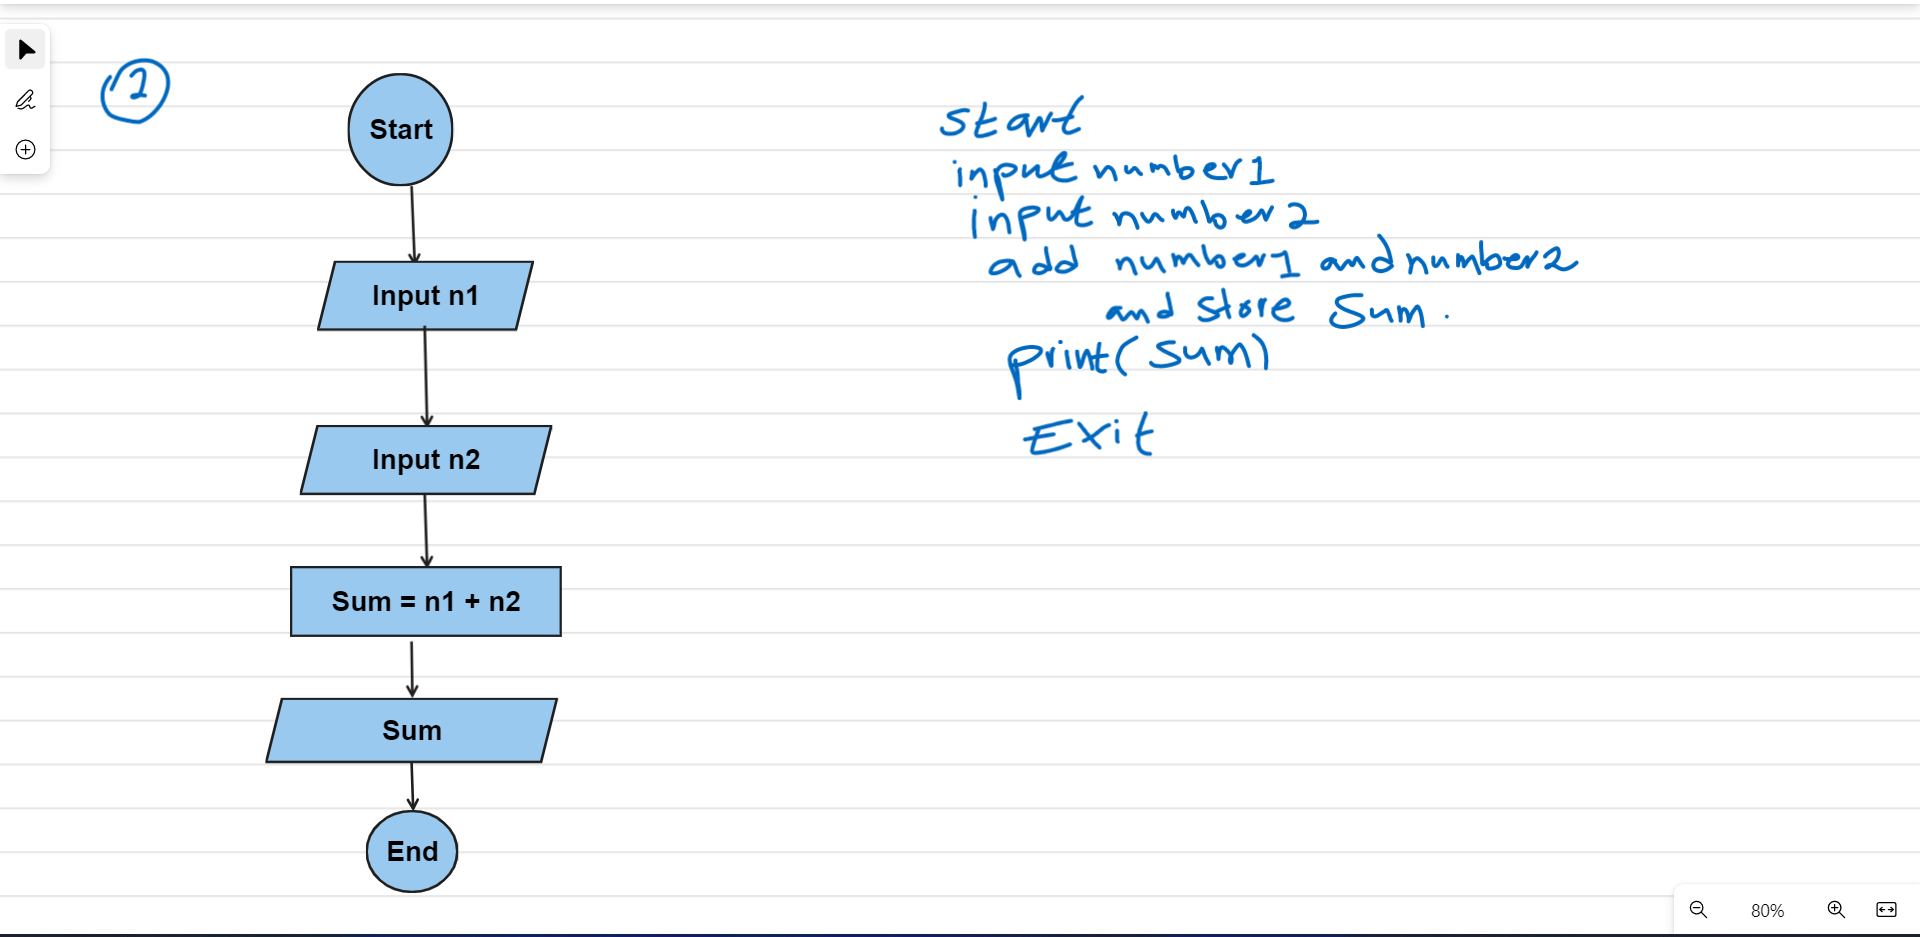 1
Start
Input n1
Input n2
Sum = n1 + n2
Sum
End
start
input number1
input number2
add number1 and number2
and store Sum.
print(sum)
Exit
80%